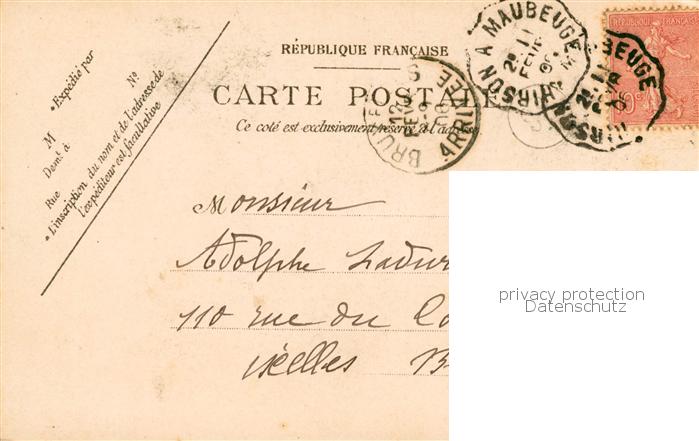 RÉPUBLIQUE FRANÇAISE
CARTE POSTALE
Ce côté est exclusivement réservé à l'adresse
Expédié par
M
Demt à
Rue Nº
L'inscription du nom et de l'adresse de
l'expéditeur est facultative
HIRSON A MAUBEUGE
2E 11 FEVR
ARRIVEE
RÉPUBLIQUE FRANÇAISE
10c
Monsieur
Adolphe
110 rue du
Ixelles B
privacy protection
Datenschutz